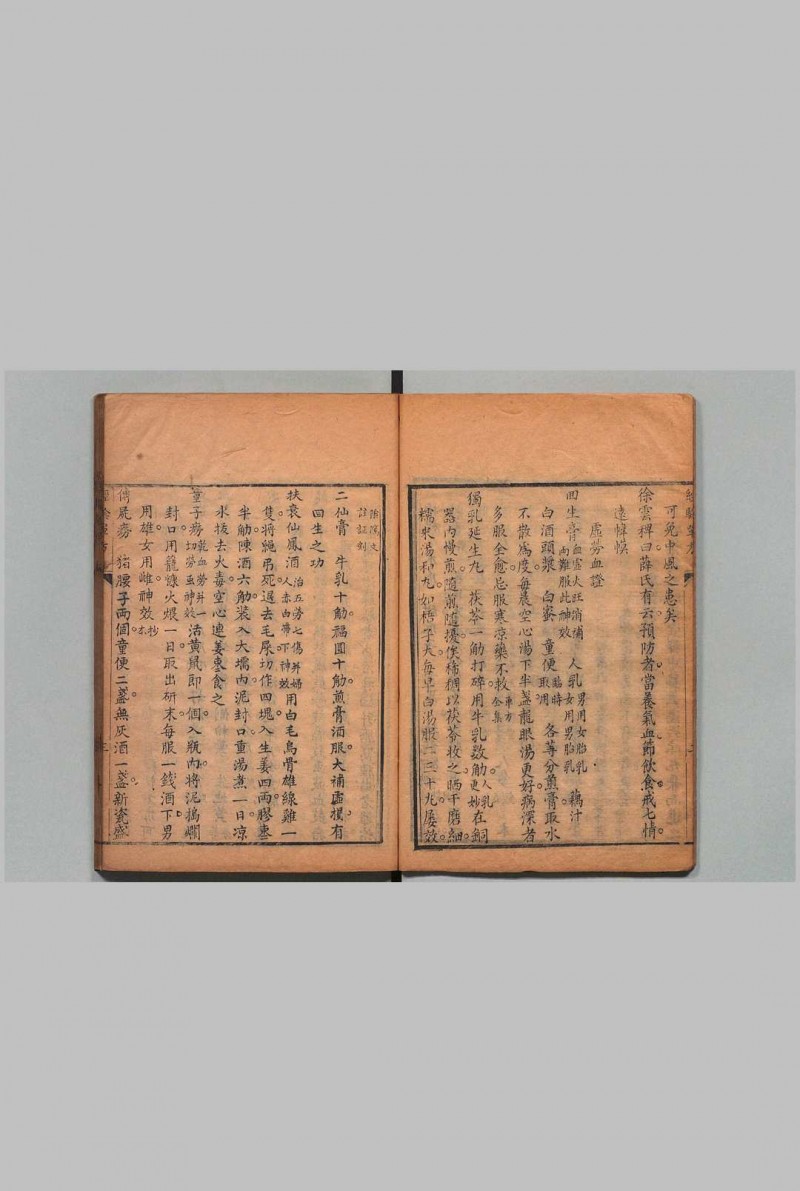 可免中風之患矣
徐雲稗曰薛氏有云預防者當養氣血節飲食戒七情
遠幃幙
虛勞血證
回生膏 血虛火旺消補兩難服此神效 人乳 男用女胎乳女用男胎乳 藕汁
白酒頭漿 白蜜 童便 臨時取用 各等分煎膏取水
不散為度每晨空心湯下半盞龍眼湯更好病深者
多服全愈忌服寒涼藥不救
獨乳延生丸 茯苓一觔打碎用牛乳数觔 人乳更妙 在銅
器內慢煎隨煎隨攪俟稀稠以茯苓收之晒干磨細
糯米湯和丸如梧子大每早白湯服二三十丸屡效
二仙膏 牛乳十觔福圓十觔煎膏酒服大補虛損有
回生之功
扶衰仙鳳酒 治五勞七傷并婦人赤白帶下神效 用白毛烏骨雄線雞一
隻將繩吊死退去毛屎切作四塊入生姜四兩膠棗
半觔陳酒六觔裝入大壜內泥封口重湯煮一日凉
水拔去火毒空心連姜棗食之
童子癆 乾血勞并一切勞虽神效 活黄鼠即一個入瓶內將泥搗爛
封口用籠糠火煨一日取出研末每服一錢酒下男
用雄女用雌神效
傳屍癆 猪腰子兩個童便二盞無灰酒一盞新瓷盛